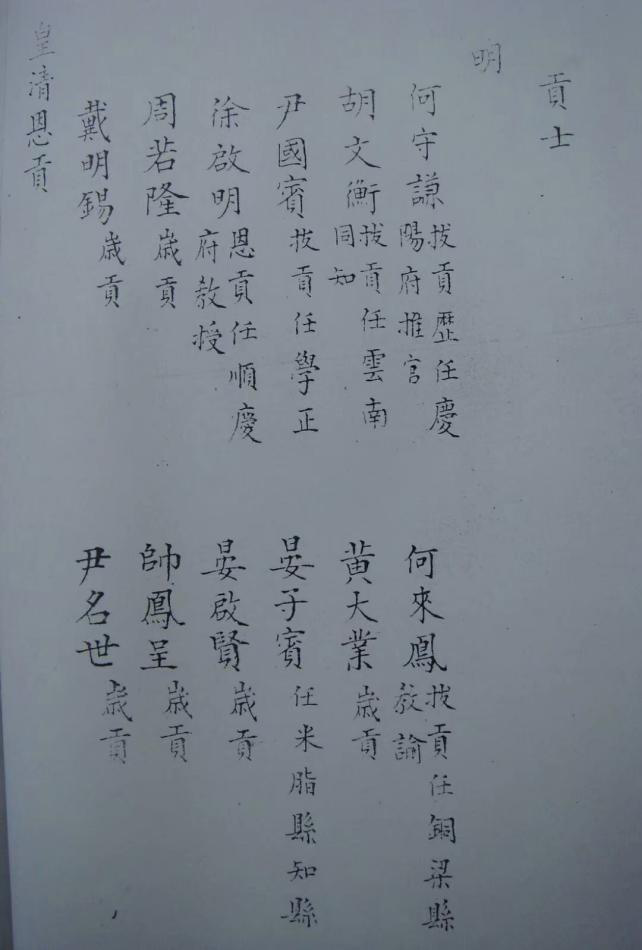 貢士
明
何守謙 拔貢歷任慶陽府推官
何來鳳 拔貢任銅梁縣教諭
胡文衡 拔貢任雲南同知
黄大業 歲貢
尹國賓 拔貢任學正
晏子賓 任米脂縣知縣
徐啟明 恩貢任順慶府教授
晏啟賢 歲貢
周若隆 歲貢
帥鳳呈 歲貢
戴明錫 歲貢
尹名世 歲貢
皇清恩貢